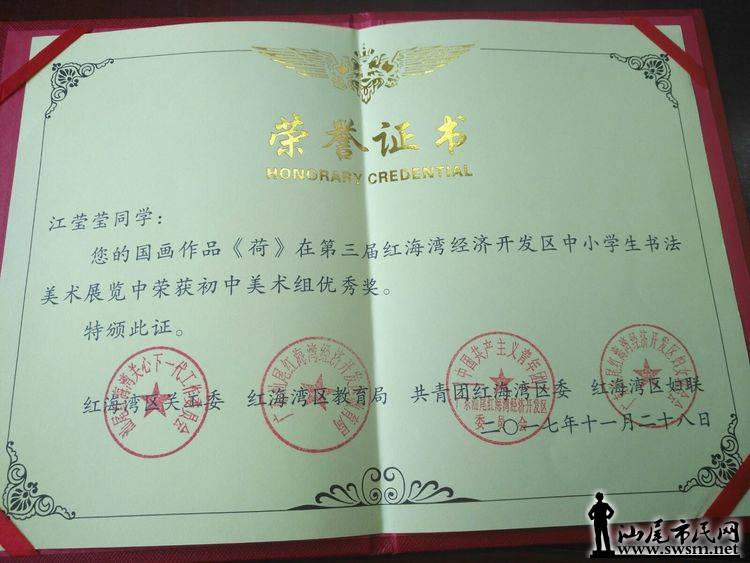 荣誉证书
HONORARY CREDENTIAL
江莹莹同学：
您的国画作品《荷》在第三届红海湾经济开发区中小学生书法
美术展览中荣获初中美术组优秀奖。
特颁此证。
红海湾区关工委 红海湾区教育局 共青团红海湾区委 红海湾区妇联
中国共产主义青年团
广东汕尾红海湾经济开发区
委员会
二〇一七年十一月二十八日
汕尾市民网
www.swsm.net